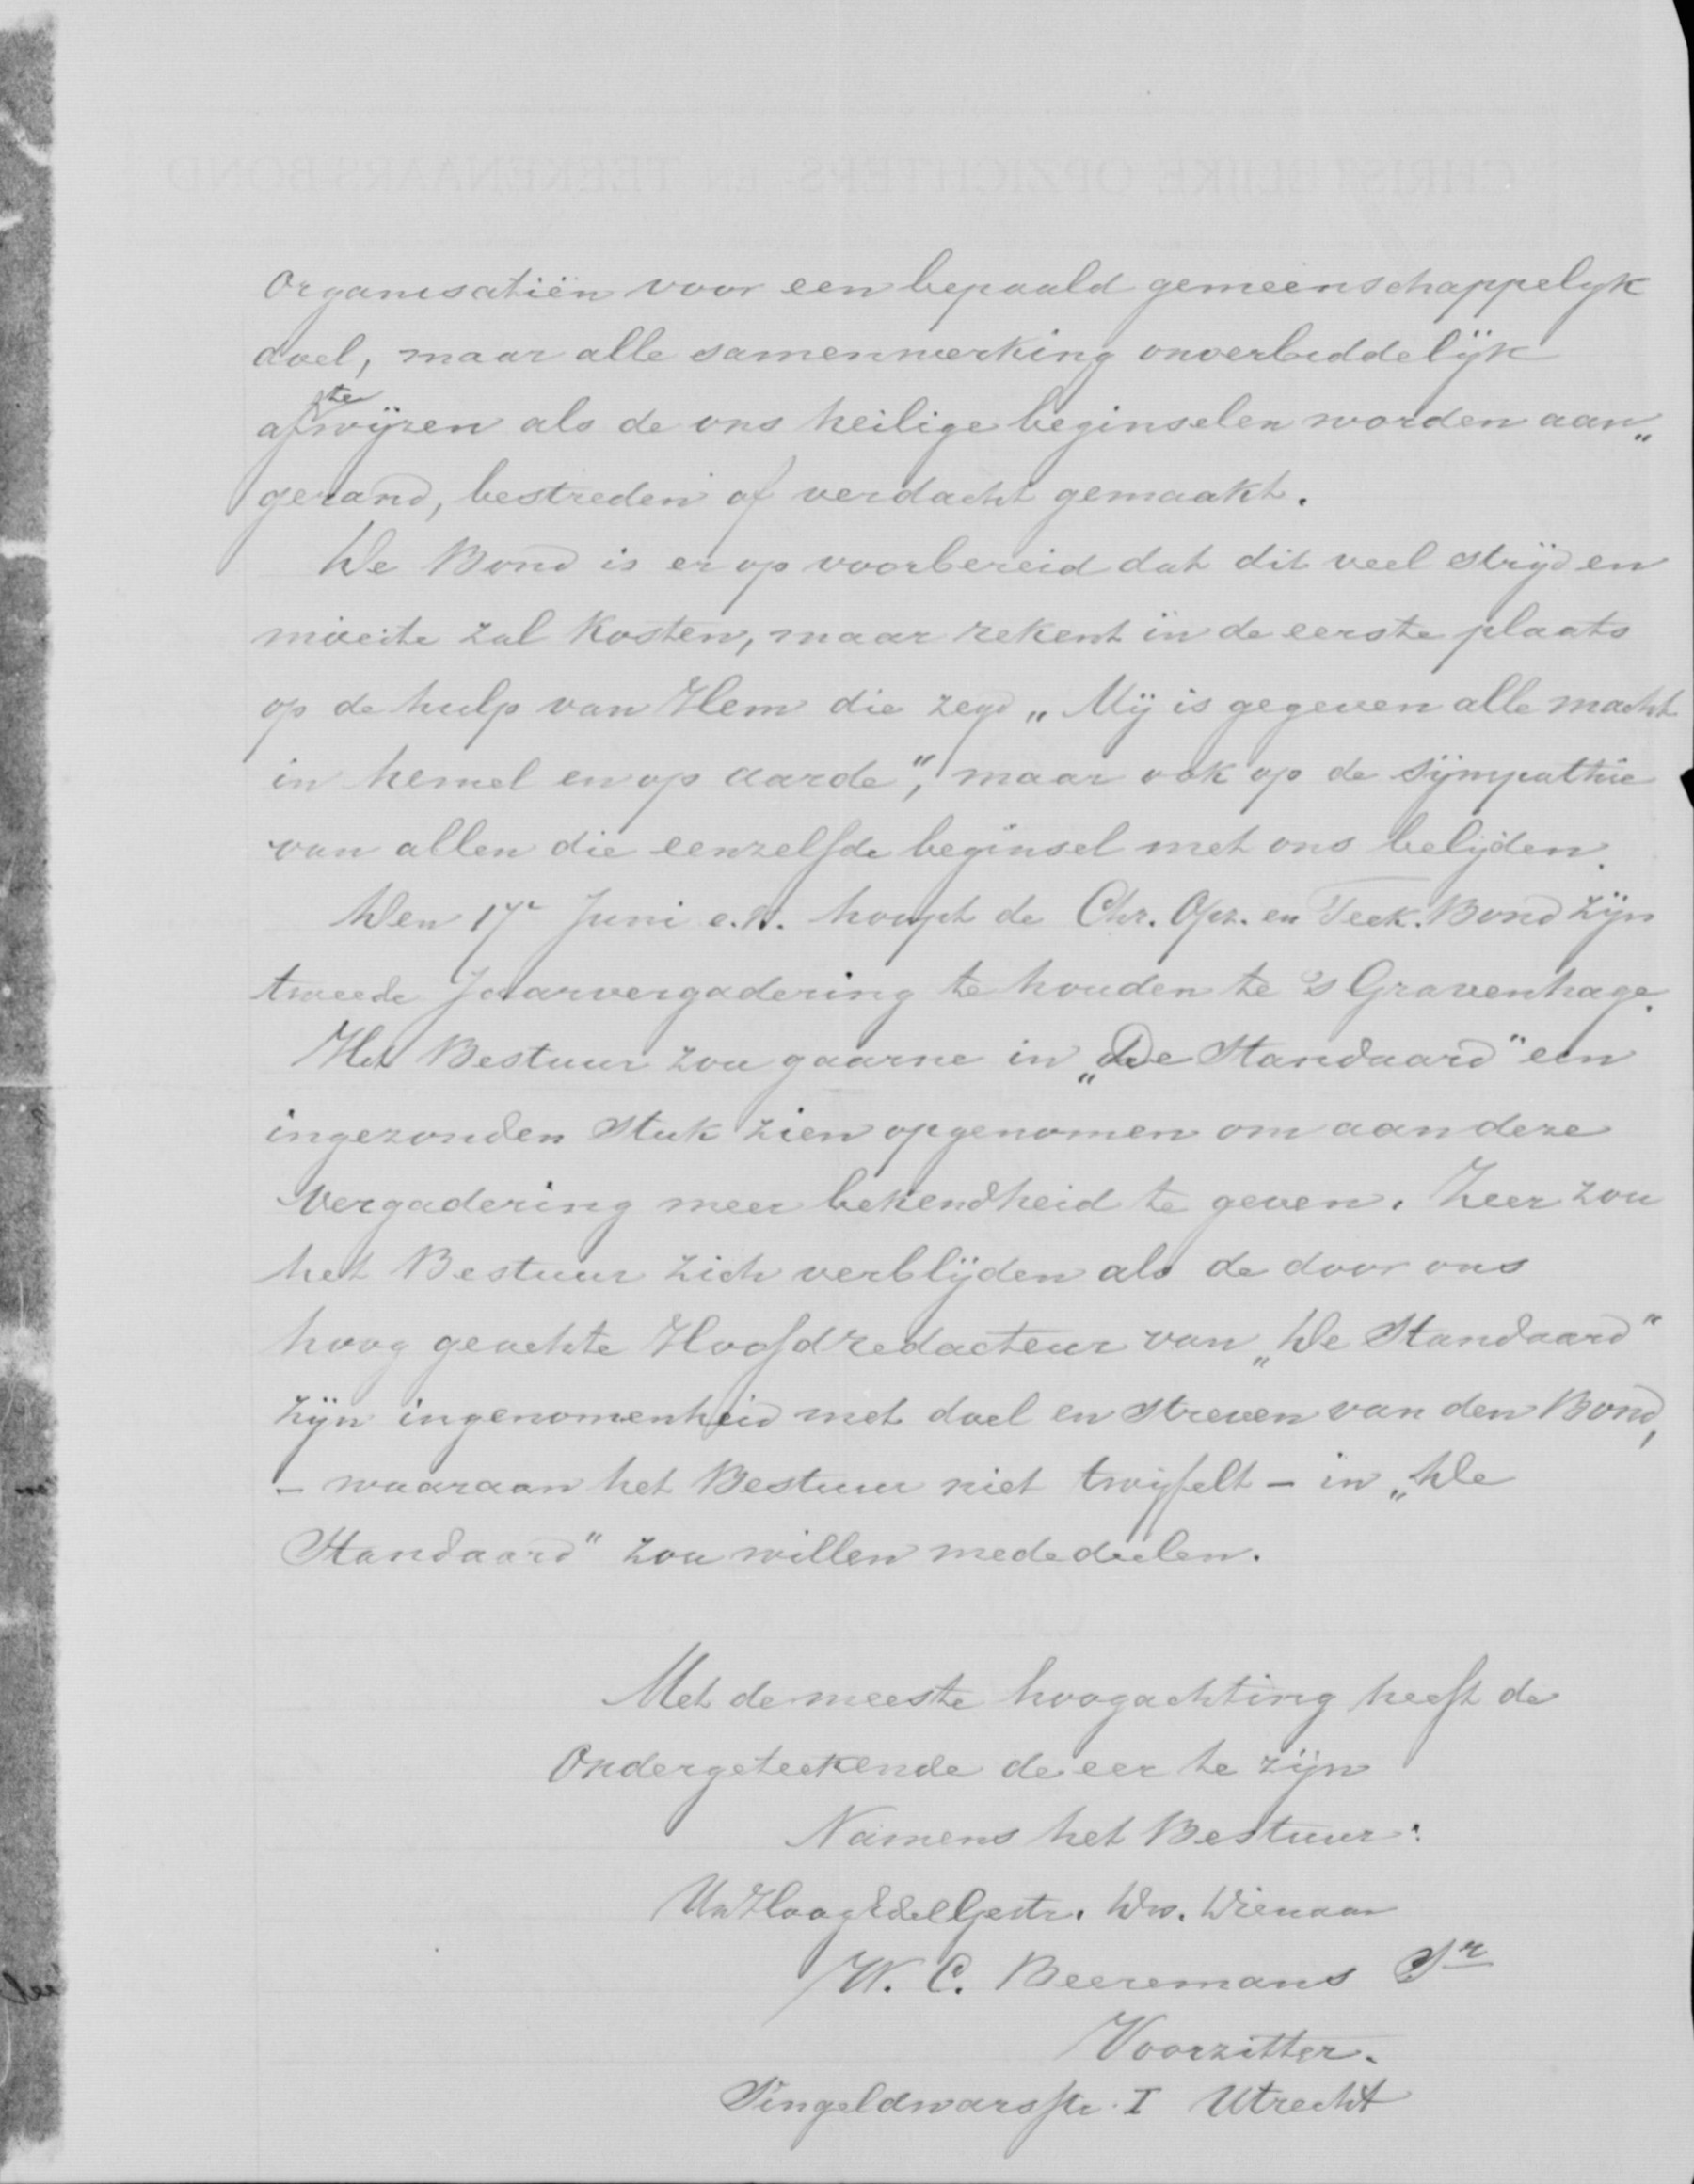 CHRISTELIJKE OPZICHTERS- EN TEEKENAARSBOND
organisatiën voor een bepaald gemeenschappelyk
doel, maar alle samenwerking onverbiddelijk
af te wijzen als de ons heilige beginselen worden aan„
gerand, bestreden of verdacht gemaakt.
De Bond is er op voorbereid dat dit veel strijd en
moeite zal kosten, maar rekent in de eerste plaats
op de hulp van Hem die zegd „Mij is gegeven alle macht
in hemel en op aarde”, maar ook op de sÿmpathie
van allen die eenzelfde beginsel met ons belijden.
Den 17e Juni e.k. hoopt de Chr. Opz. en Teek. Bond zijn
tweede Jaarvergadering te houden te 's Gravenhage.
Het Bestuur zou gaarne in „De Standaard" een
ingezonden stuk zien opgenomen om aan deze
vergadering meer bekendheid te geven. Zeer zou
het Bestuur zich verblijden als de door ons
hoog geachte Hoofdredacteur van „De Standaard"
zijn ingenomenheid met doel en streven van den Bond,
- waaraan het Bestuur niet twijfelt - in „De
Standaard" zou willen mededeelen.
Met de meeste hoogachting heeft de
Ondergeteekende de eer te zijn
Namens het Bestuur:
Uw HoogEdelGestr. Dw. Dienaar
W. C. Beeremans Sr
Voorzitter.
Singeldwarsstr. I Utrecht